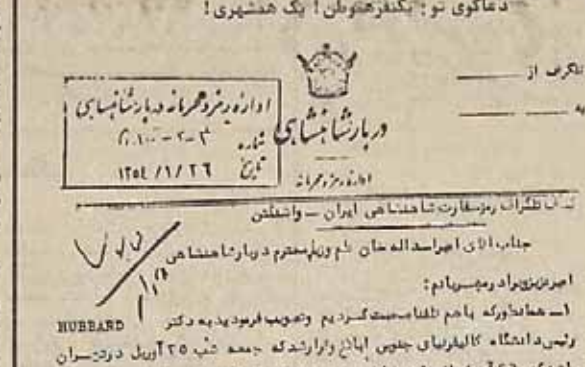 دعاگوی تو : یکنفر هموطن ! یک همشهری !
تلگراف از
دربار شاهنشاهی
اداره رمز و محرمانه
اداره رمز و محرمانه دربار شاهنشاهی
شماره
تاریخ ۱۳۵۴ /۱/ ۲۶
تلگراف رمز سفارت شاهنشاهی ایران ــ واشنگتن
جناب آقای امیر اسداله خان علم وزیر محترم دربار شاهنشاهی
امیر عزیز و برادر مهربانم :
۱ــ همانطور که باهم تلفنا صحبت کردیم و تصویب فرمودید به دکتر HUBBARD
رئیس دانشگاه کالیفرنیای جنوبی ابلاغ و قرار شد که جمعه شب ۲۵ آوریل در تهران